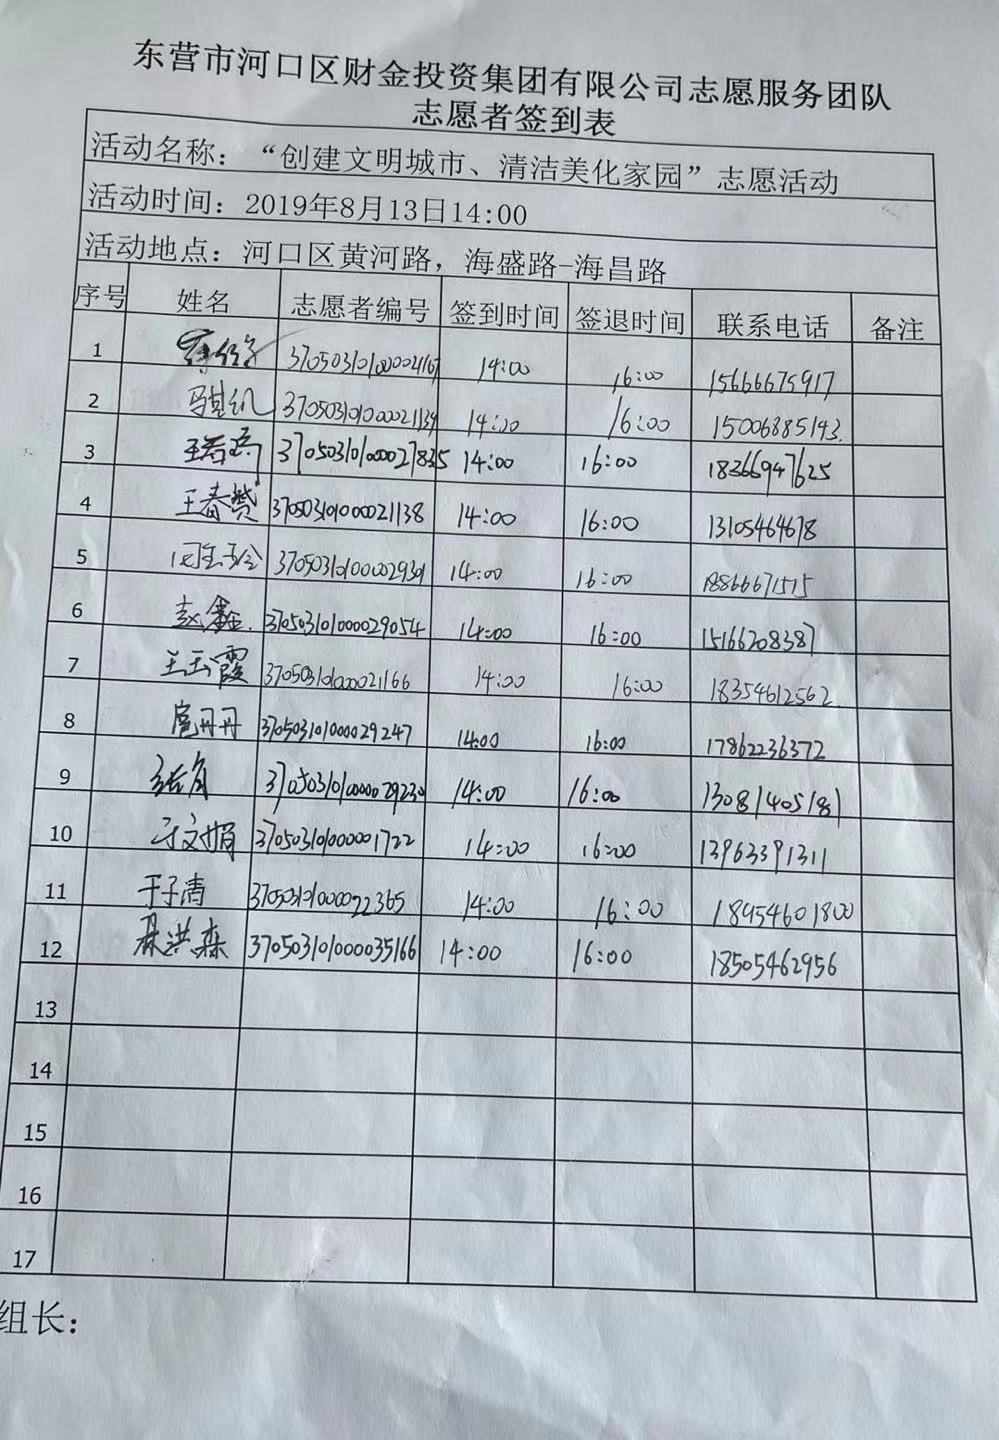 东营市河口区财金投资集团有限公司志愿服务团队
志愿者签到表
活动名称：“创建文明城市、清洁美化家园”志愿活动
活动时间：2019年8月13日14:00
活动地点：河口区黄河路，海盛路-海昌路
序号 姓名 志愿者编号 签到时间 签退时间 联系电话 备注
1 14:00 16:00 15666675917
2 370503101000021139 14:00 16:00 15006885143.
3 370503101000027835 14:00 16:00 18366947625
4 王春赞 370503101000021138 14:00 16:00 13105464678
5 14:00 16:00 18866671515
6 赵鑫. 370503101000029054 14:00 16:00 15166208387
7 王玉霞 370503101000021166 14:00 16:00 18354612562.
8 扈丹丹 370503101000029247 14:00 16:00 17862236372
9 370503101000029230 14:00 16:00 13081405181
10 于文娟 370503101000001722 14:00 16:00 13963391311
11 于子清 370503101000022365 14:00 16:00 18954601800
12 聂洪森 370503101000035166 14:00 16:00 18505462956
13
14
15
16
17
组长：